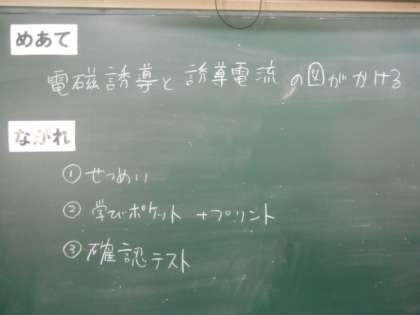 めあて
電磁誘導と誘導電流の図がかける
ながれ
①せつめい
②学びポケット+プリント
③確認テスト